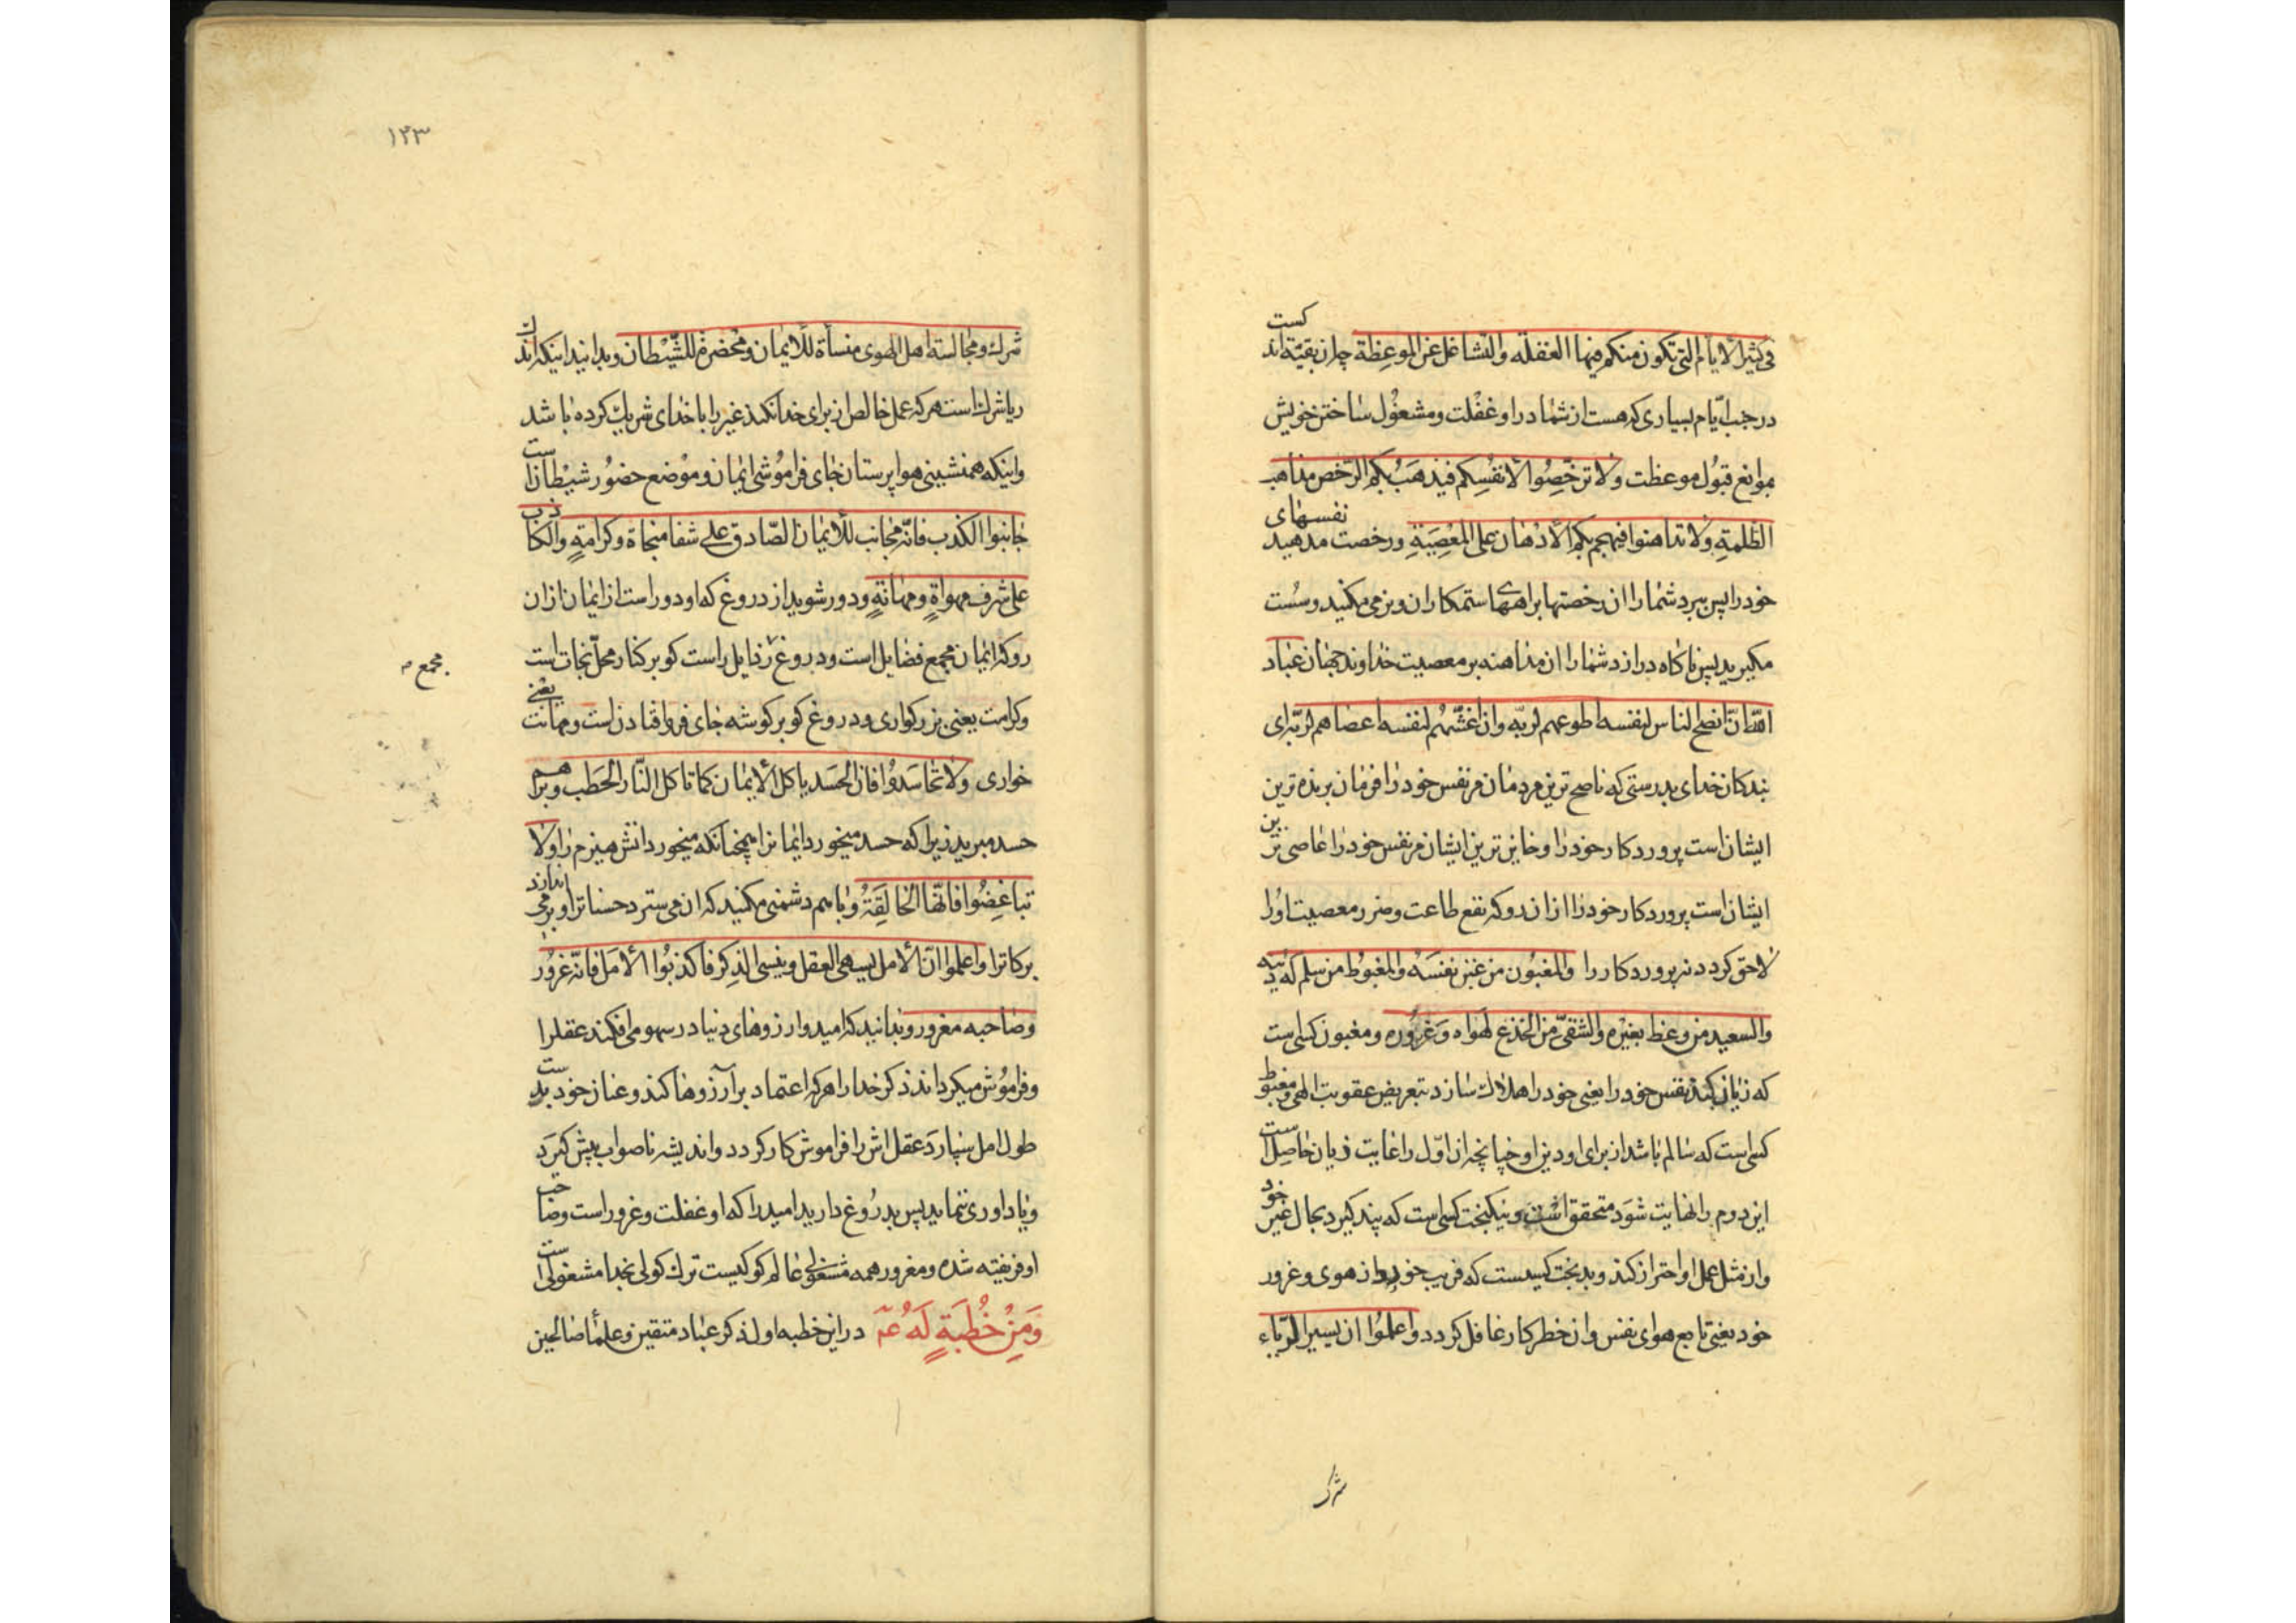 فی کثیر الایام التی تکون منکم فیها الغفلة والتشاغل عن الموعظة چه ان بقیّه اندکست
در جنب ایّام بسیاری که هست از شما در او غفلت و مشغول ساختن خویش
بموانع قبول موعظت ولا ترخّصوا لانفسکم فیذهب بکم الرّخص مذاهب
الظلمة ولا تداهنوا فیهجم بکم الادهان علی المعصیة و رخصت مدهید نفسهای
خود را پس ببرد شما را ان رخصتها براههای ستمکاران و نرمی مکنید و سست
مکیرید پس ناکاه درارد شما را ان مداهنه بر معصیت خداوند جهان عباد
الله انّ انصح الناس لنفسه اطوعهم لربّه وان اغشّهم لنفسه اعصاهم لربّه ای
بندکان خدای بدرستی که ناصح ترین مردمان مر نفس خود را فرمان برنده ترین
ایشان است پروردکار خود را و خاین ترین ایشان مر نفس خود را عاصی ترین
ایشان است پروردکار خود را از ان رو که نفع طاعت و ضرر معصیت او را
لاحق کردد نه پروردکار را والمغبون من غبن نفسه والمغبوط من سلم له دینه
والسعید من وعظ بغیره والشقیّ من انخدع لهواه وغروره و مغبون کسی است
که زیان کند نفس خود را یعنی خود را هلاک سازد بتعریض عقوبت الهی و مغبوط
کسی است که سالم باشد از برای او دین او چنانچه ان اوّل را غایت زیان حاصل است
این دوم را نهایت شود متحقق است و نیکبخت کسی است که پند کیرد بحال غیر خود
و از مثل عمل او احتراز کند و بدبخت کسیست که فریب خورد از هوی و غرور
خود یعنی تابع هوای نفس و از خطر کار غافل کردد واعلموا ان یسیر الرّیاء
شرک
۱۲۳
شرک ومجالسة اهل الهوی منسأة للایمان ومحضرة للشّیطان و بدانید اینکه اندک
ریا شرک است هر که عمل خالص از برای خدا نکند غیر را با خدای شریک کرده باشد
واینکه همنشینی هواپرستان جای فراموشی ایمان و موضع حضور شیطان است
جانبوا الکذب فانّه مجانب للایمان الصّادق علی شفا منجاة وکرامة والکاذب
علی شرف مهواة ومهانة و دور شوید از دروغ که او دور است از ایمان از ان
رو که ایمان مجمع فضایل است و دروغ رذایل راست کو بر کنار محلّ نجات است
مجمع
وکرامت یعنی بزرکواری و دروغ کو بر کوشه جای فرو افتادن است و مهانت یعنی
خواری ولا تحاسدوا فان الحسد یاکل الایمان کما تاکل النّار الحطب و بر هم
حسد مبرید زیرا که حسد میخورد ایمان را همچنانکه میخورد اتش هیزم را ولا
تباغضوا فانّها الحالقة و با هم دشمنی مکنید که ان می سترد حسنات را و بر می اندازد
برکات را واعلموا انّ الامل یسهی العقل وینسی الذکر فاکذبوا الامل فانّه غرور
وصاحبه مغرور و بدانید که امید و ارزوهای دنیا در سهو می افکند عقل را
و فراموش میکرداند ذکر خدا را هر که اعتماد بر آرزوها کند و عنان خود بدست
طول امل سپارد عقل اش را فراموش کار کردد و اندیشه ناصواب پیش کیرد
و یاد اوری ننماید پس بدروغ دارید امید را که او غفلت و غرور است وصاحب
او فریفته شده و مغرور همه مشغولی عالم کو کیست ترک کولی بخدا مشغولی است
وَمِنْ خُطبَةٍ لَهُ عم در این خطبه اول ذکر عباد متقین و علماء صالحین